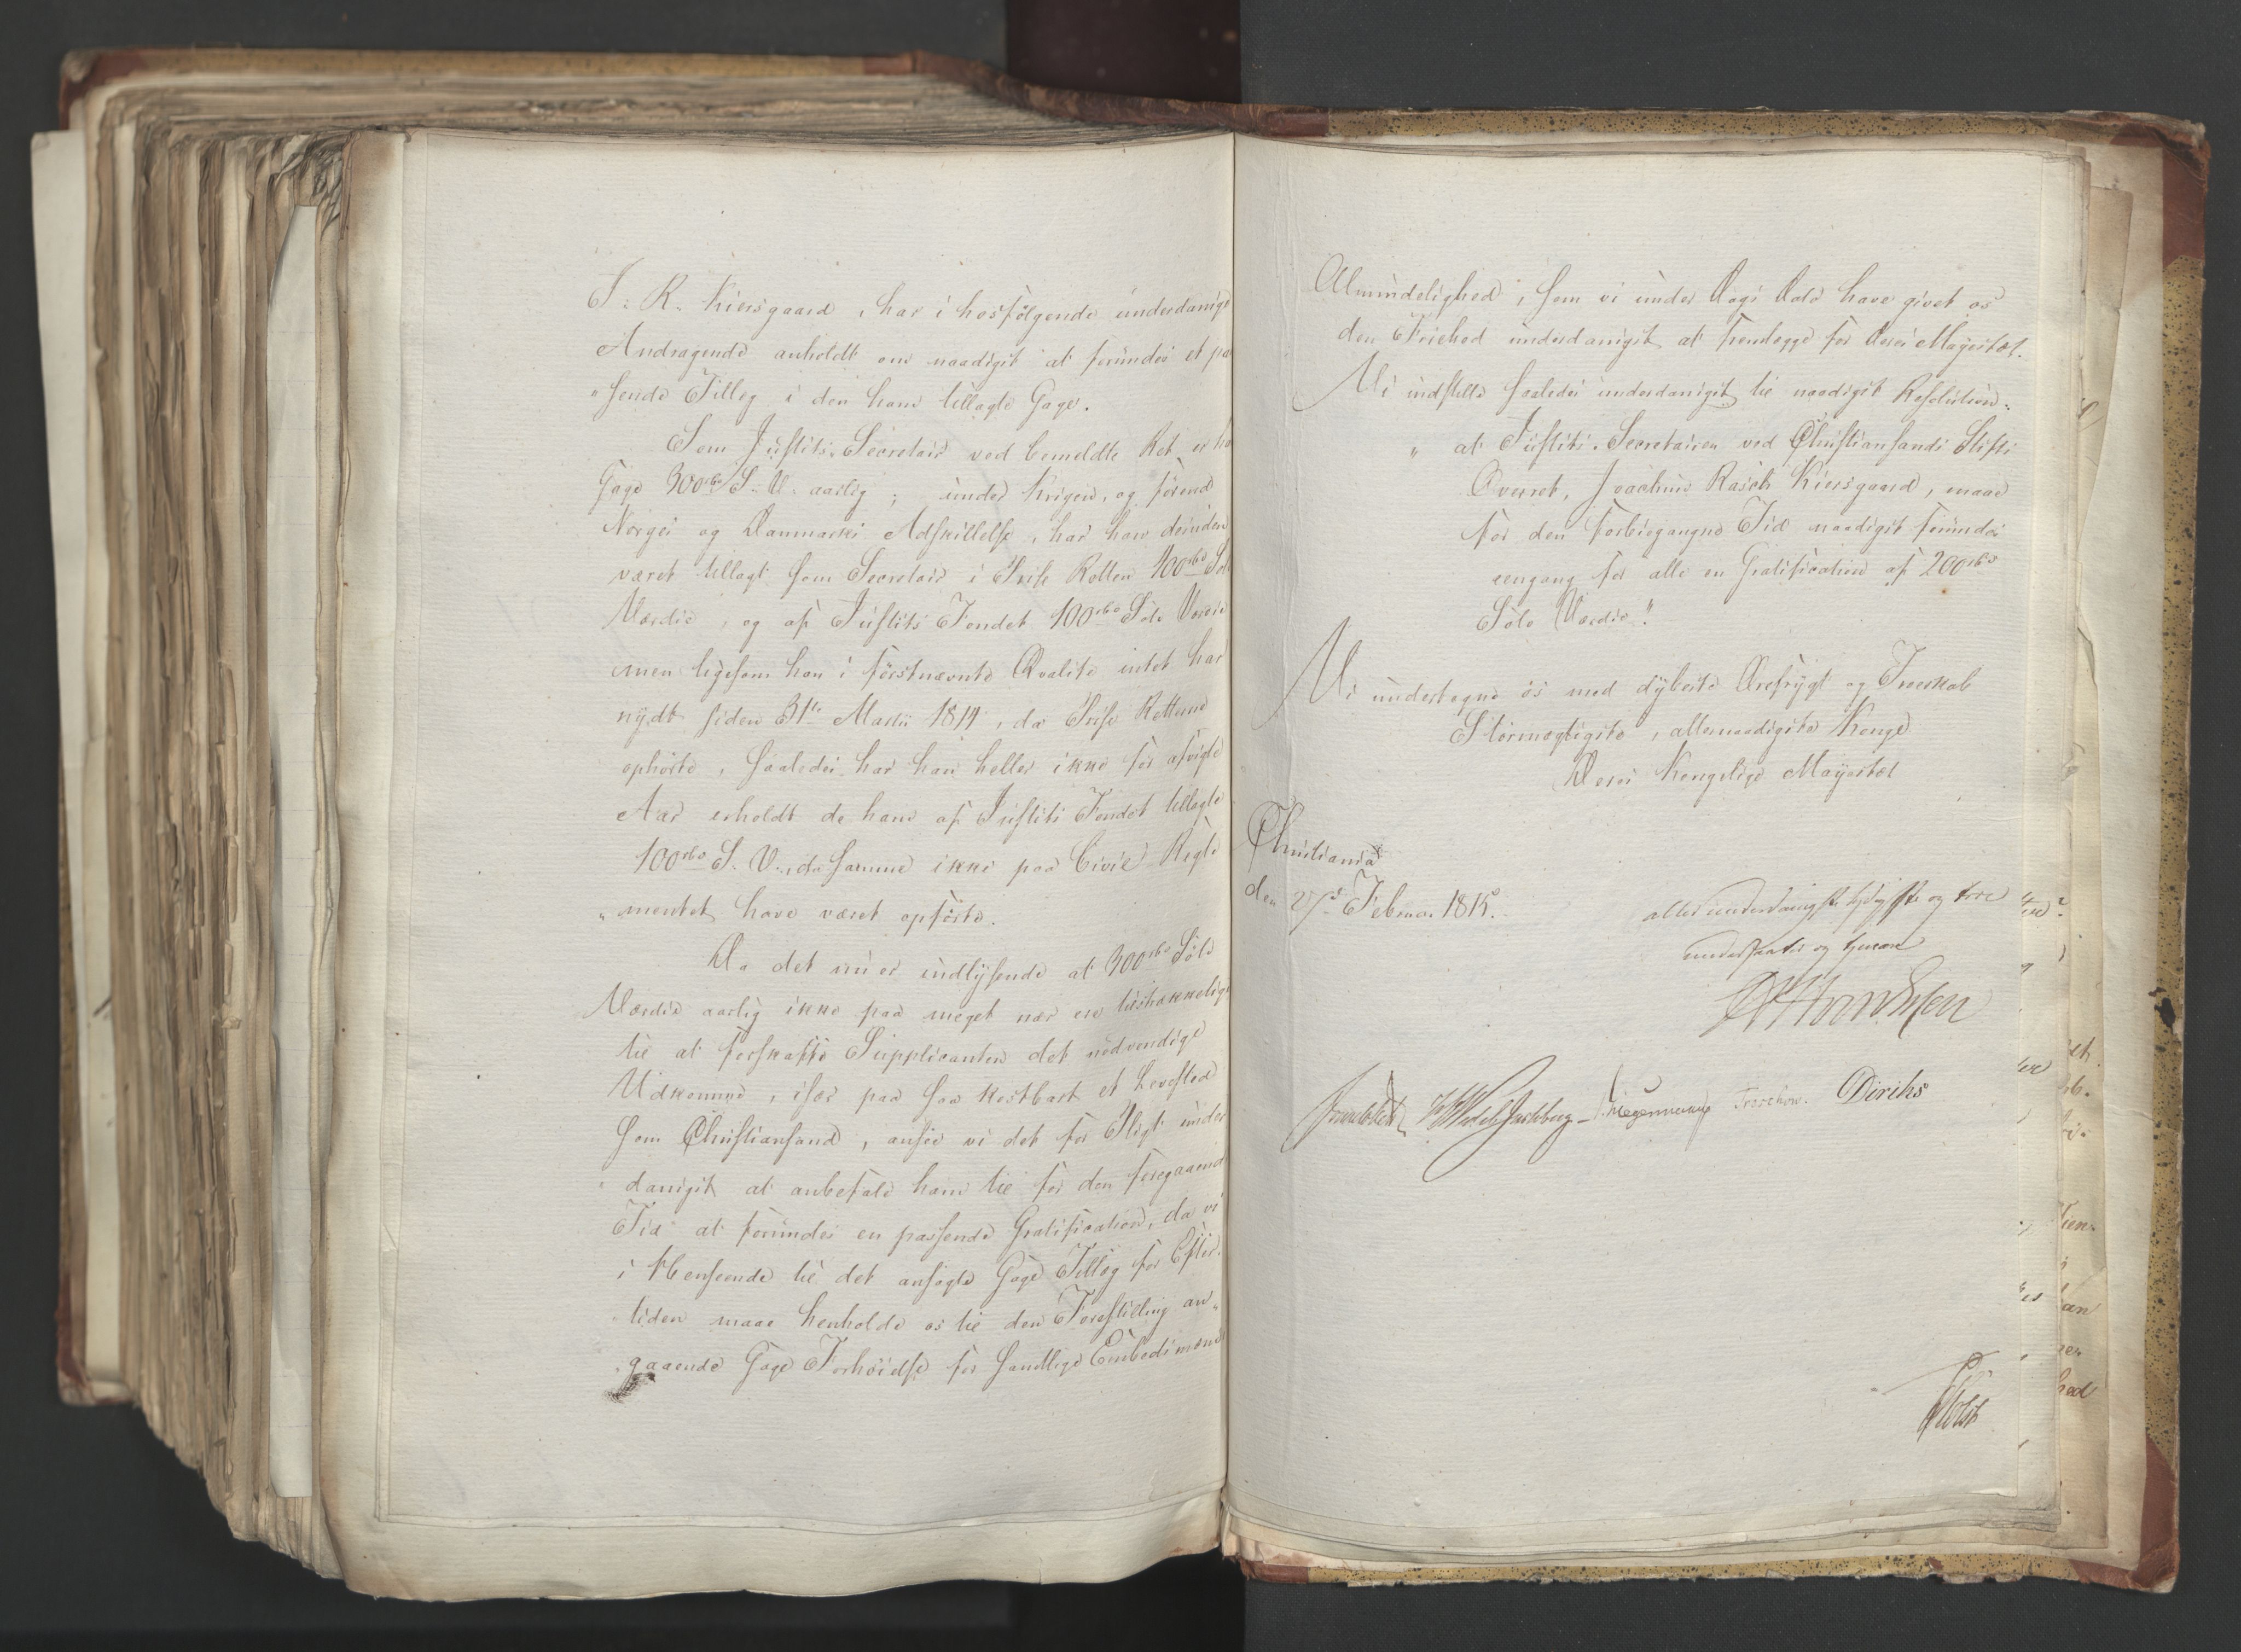 J. R. Kiersgaard, har i hosfølgende underdanigst
Andragende anholdt om naadigst at forundes et pas
"sende Tillæg i den ham tillagte Gage.
Som Justits-Secretair ved bemeldte Ret er
Gage 300 rbd S. V. aarlig; under Krigen, og førend
Norges og Danmarks Adskillelse, har ham desuden
været tillagt som Secretair i Prise Retten 400 rbd Sølv
Værdie, og af Justits Fondet 100 rbd Sølv Værdie
men ligesom han i førstnævnte Qvalite intet har
nydt siden 31te Martii 1814, da Prise Retterne
ophørte, saaledes har han heller ikke for afvigte
Aar erholdt de ham af Justits Fondet tillagte
100 rbd S. V., da samme ikke paa Civil Regle
"mentet have været opførte.
Da det nu er indlysende at 300 rbd Sølv
Værdie aarlig ikke paa meget nær er tilstrækkelige
til at forskaffe Supplicanten det nødvendige
Udkomme, især paa saa kostbart et Levested
som Christiansand, ansee vi det for Pligt under
"danigst at anbefale ham til for den foregaaende
Tid at forundes en passende Gratification, da vi
i Henseende til det ansøgte Gage Tillæg for Efter-
tiden maae henholde os til den Forestilling an"
"gaaende Gage Forhøidelse for samtlige Embedsmænd
Almindelighed, som vi under Dags Dato have givet os
den Friehed underdanigst at fremlægge for Deres Mayestæt.
Vi indstille saaledes underdanigst til naadigst Resolution:
" at Justits-Secretairen ved Christiansands Stifts
Overret, Joachim Rasch Kiersgaard, maae
for den forbiegangne Tid naadigst forundes
eengang for alle en Gratification af 200 rbd
Sølv Værdie."
Vi undertegne os med dybeste Ærefrygt og Troeskab
Stormægtigste, allernaadigste Konge
Deres Kongelige Mayestæt
Christiania
den 27de Februar 1815.
allerunderdanigste lydigste og troe
undersaatter og tjenere
Sommerhielm Wedel Jarlsberg Hegermann Treschow. Diriks
Holst